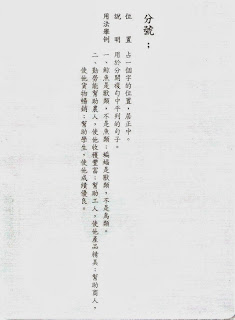 分號；
位　置　占一個字的位置，居正中。
說　明　用於分開複句中平列的句子。
用法舉例　一、鯨魚是獸類，不是魚類；蝙蝠是獸類，不是鳥類。
二、勤勞能幫助農人，使他收穫豐富；幫助工人，使他產品精良；幫助商人，
使他貨物暢銷；幫助學生，使他成績優良。